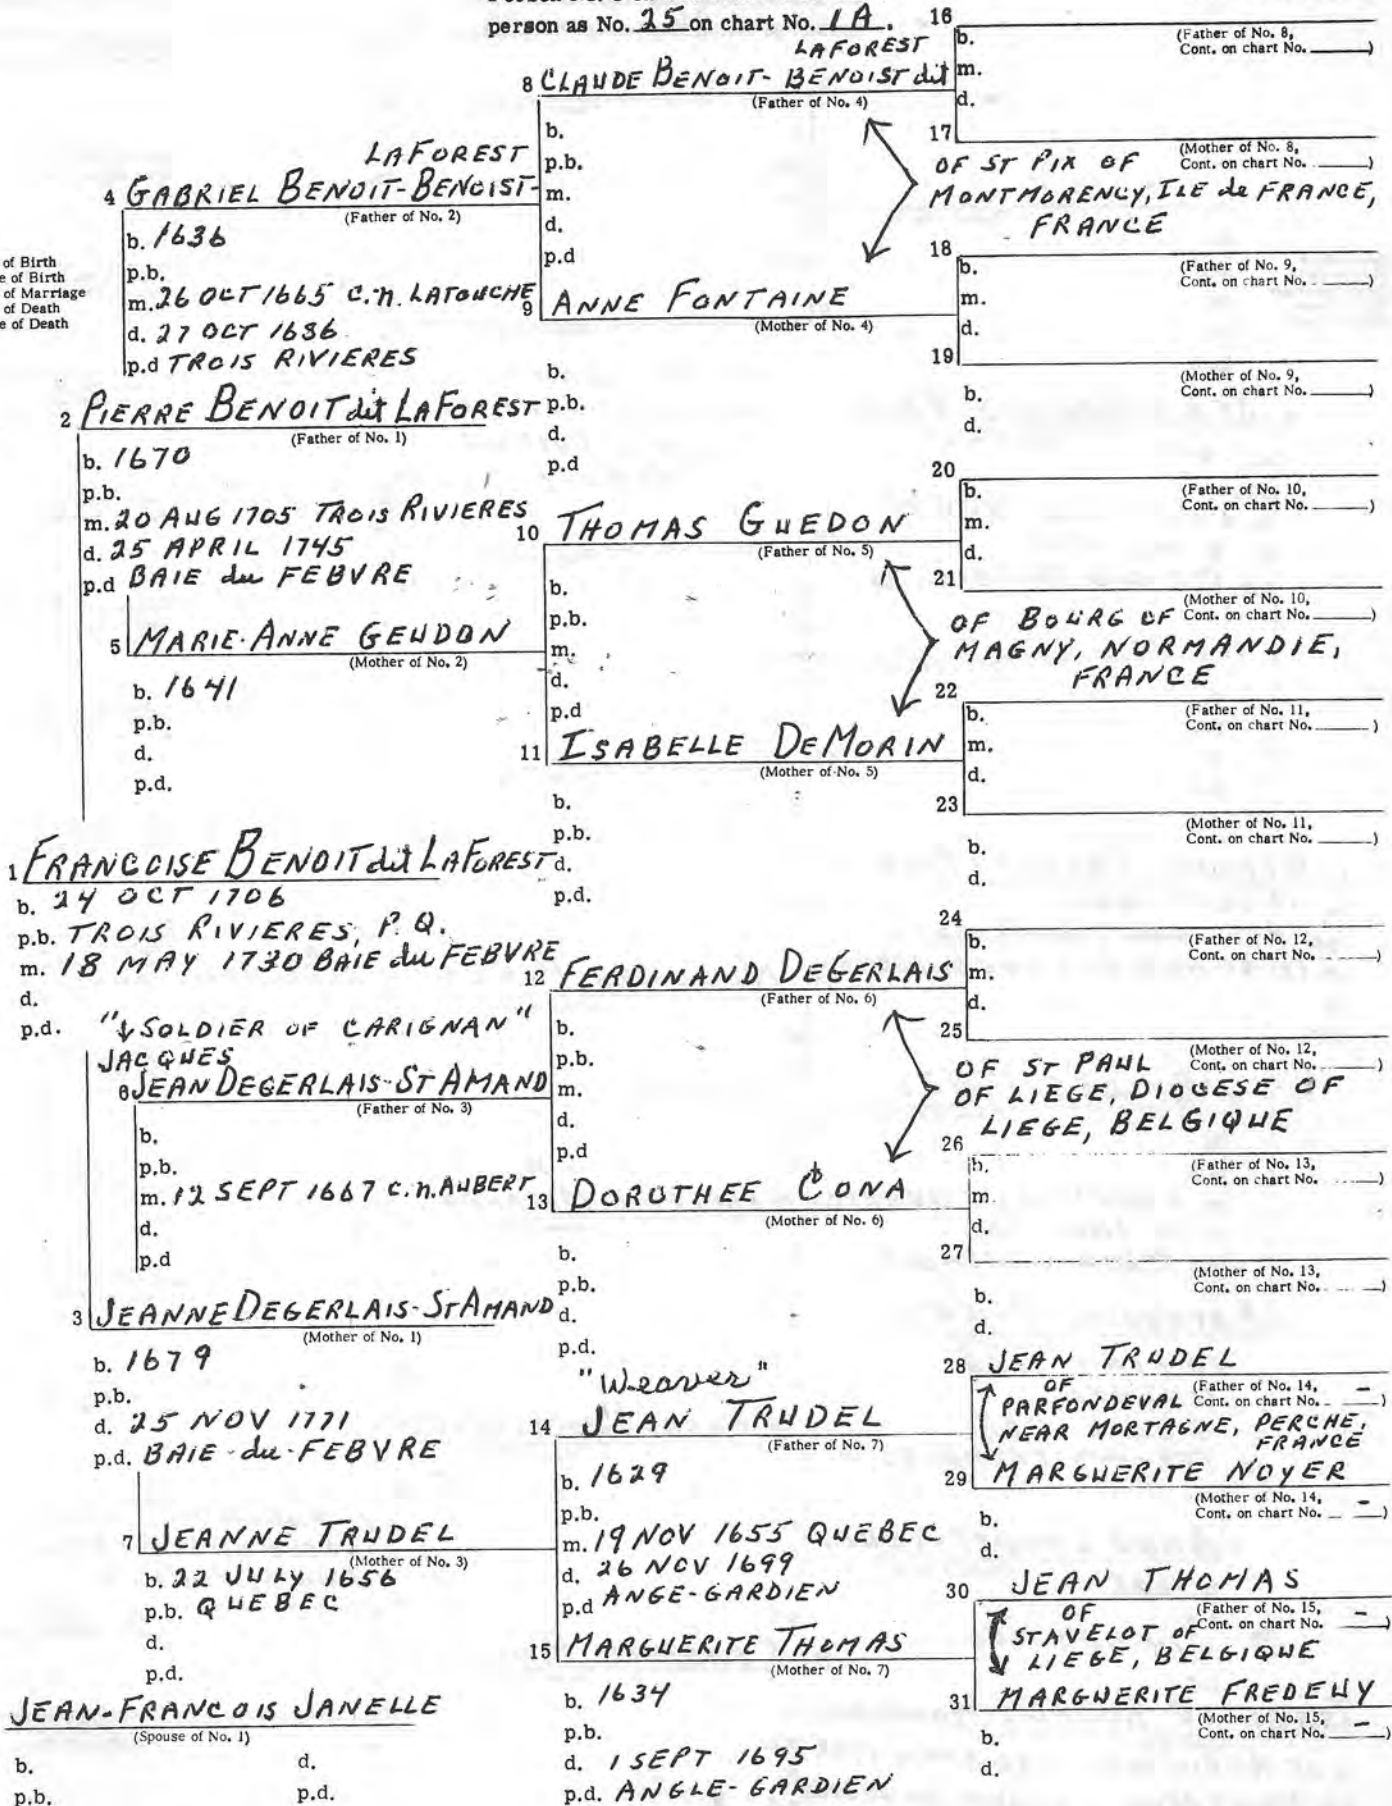 person as No. 25 on chart No. 1A.
of Birth
e of Birth
of Marriage
of Death
e of Death
1 FRANCOISE BENOIT dit LAFOREST
b. 24 OCT 1706
p.b. TROIS RIVIERES, P.Q.
m. 18 MAY 1730 BAIE du FEBVRE
d.
p.d.
2 PIERRE BENOIT dit LAFOREST
(Father of No. 1)
b. 1670
p.b.
m. 20 AUG 1705 TROIS RIVIERES
d. 25 APRIL 1745
p.d BAIE du FEBVRE
3 JEANNE DEGERLAIS-ST AMAND
(Mother of No. 1)
b. 1679
p.b.
d. 25 NOV 1771
p.d. BAIE-du-FEBVRE
JEAN-FRANCOIS JANELLE
(Spouse of No. 1)
b.
d.
p.b.
p.d.
LAFOREST
4 GABRIEL BENOIT-BENOIST-
(Father of No. 2)
b. 1636
p.b.
m. 26 OCT 1665 C.N. LATOUCHE
d. 27 OCT 1686
p.d TROIS RIVIERES
5 MARIE-ANNE GEUDON
(Mother of No. 2)
b. 1641
p.b.
d.
p.d.
"SOLDIER OF CARIGNAN"
JACQUES
6 JEAN DEGERLAIS-ST AMAND
(Father of No. 3)
b.
p.b.
m. 12 SEPT 1667 C.N. AUBERT
d.
p.d
7 JEANNE TRUDEL
(Mother of No. 3)
b. 22 JULY 1656
p.b. QUEBEC
d.
p.d.
LAFOREST
8 CLAUDE BENOIT-BENOIST dit
(Father of No. 4)
b.
p.b.
m.
d.
p.d
9 ANNE FONTAINE
(Mother of No. 4)
b.
p.b.
d.
p.d
10 THOMAS GUEDON
(Father of No. 5)
b.
p.b.
m.
d.
p.d
11 ISABELLE DEMORIN
(Mother of No. 5)
b.
p.b.
d.
p.d.
12 FERDINAND DEGERLAIS
(Father of No. 6)
b.
p.b.
m.
d.
p.d
13 DOROTHEE CONA
(Mother of No. 6)
b.
p.b.
d.
p.d.
"Weaver"
14 JEAN TRUDEL
(Father of No. 7)
b. 1629
p.b.
m. 19 NOV 1655 QUEBEC
d. 26 NOV 1699
p.d ANGE-GARDIEN
15 MARGUERITE THOMAS
(Mother of No. 7)
b. 1634
p.b.
d. 1 SEPT 1695
p.d. ANGLE-GARDIEN
16
b.
(Father of No. 8,
Cont. on chart No. ____)
m.
d.
17
(Mother of No. 8,
Cont. on chart No. ____)
OF ST PIX OF
MONTMORENCY, ILE de FRANCE,
FRANCE
18
b.
(Father of No. 9,
Cont. on chart No. ____)
m.
d.
19
(Mother of No. 9,
Cont. on chart No. ____)
b.
d.
20
b.
(Father of No. 10,
Cont. on chart No. ____)
m.
d.
21
(Mother of No. 10,
Cont. on chart No. ____)
OF BOURG OF
MAGNY, NORMANDIE,
FRANCE
22
b.
(Father of No. 11,
Cont. on chart No. ____)
m.
d.
23
(Mother of No. 11,
Cont. on chart No. ____)
b.
d.
24
b.
(Father of No. 12,
Cont. on chart No. ____)
m.
d.
25
(Mother of No. 12,
Cont. on chart No. ____)
OF ST PAUL
OF LIEGE, DIOCESE OF
LIEGE, BELGIQUE
26
b.
(Father of No. 13,
Cont. on chart No. ____)
m.
d.
27
(Mother of No. 13,
Cont. on chart No. ____)
b.
d.
28 JEAN TRUDEL
(Father of No. 14,
Cont. on chart No. ____)
OF
PARFONDEVAL
NEAR MORTAGNE, PERCHE,
FRANCE
29 MARGUERITE NOYER
(Mother of No. 14,
Cont. on chart No. ____)
b.
d.
30 JEAN THOMAS
(Father of No. 15,
Cont. on chart No. ____)
OF
STAVELOT OF
LIEGE, BELGIQUE
31 MARGUERITE FREDEUY
(Mother of No. 15,
Cont. on chart No. ____)
b.
d.